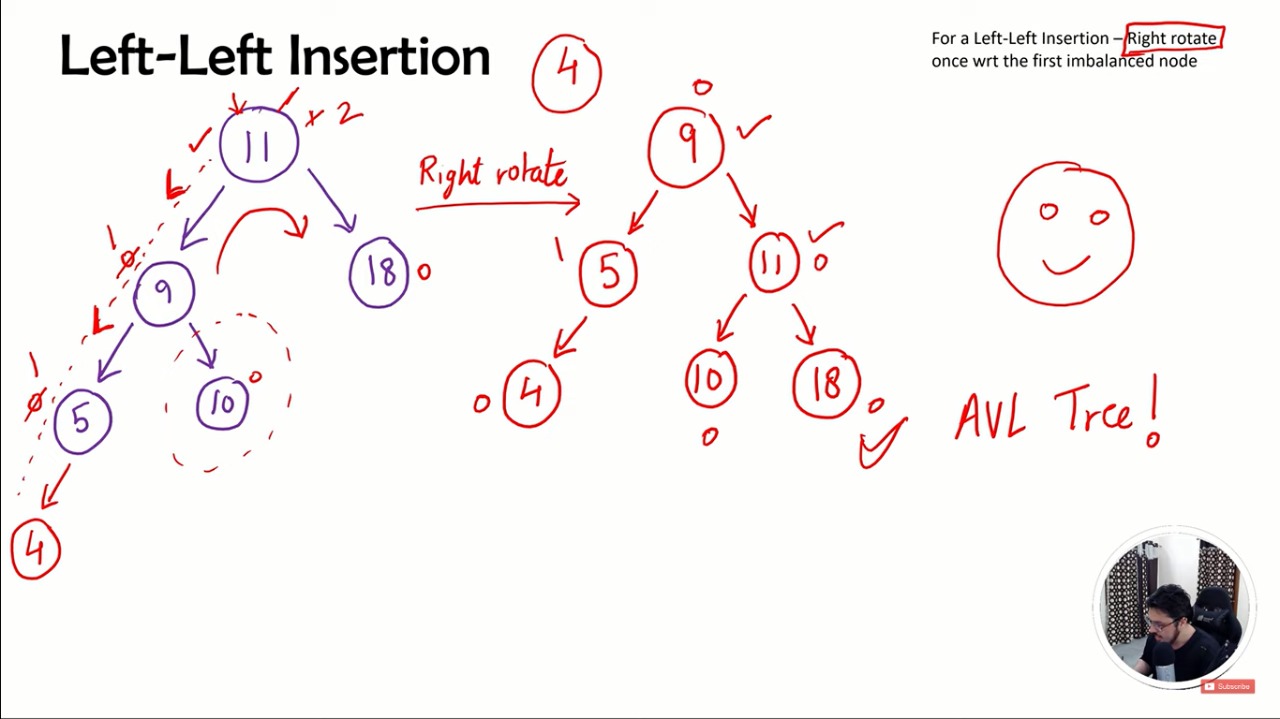 Left-Left Insertion
4
For a Left-Left Insertion – Right rotate
once wrt the first imbalanced node
11
+ 2
L
1
0
9
18
0
L
1
0
5
10
0
4
Right rotate
0
9
1
5
11
0
0
4
10
0
18
0
AVL Tree!
Subscribe